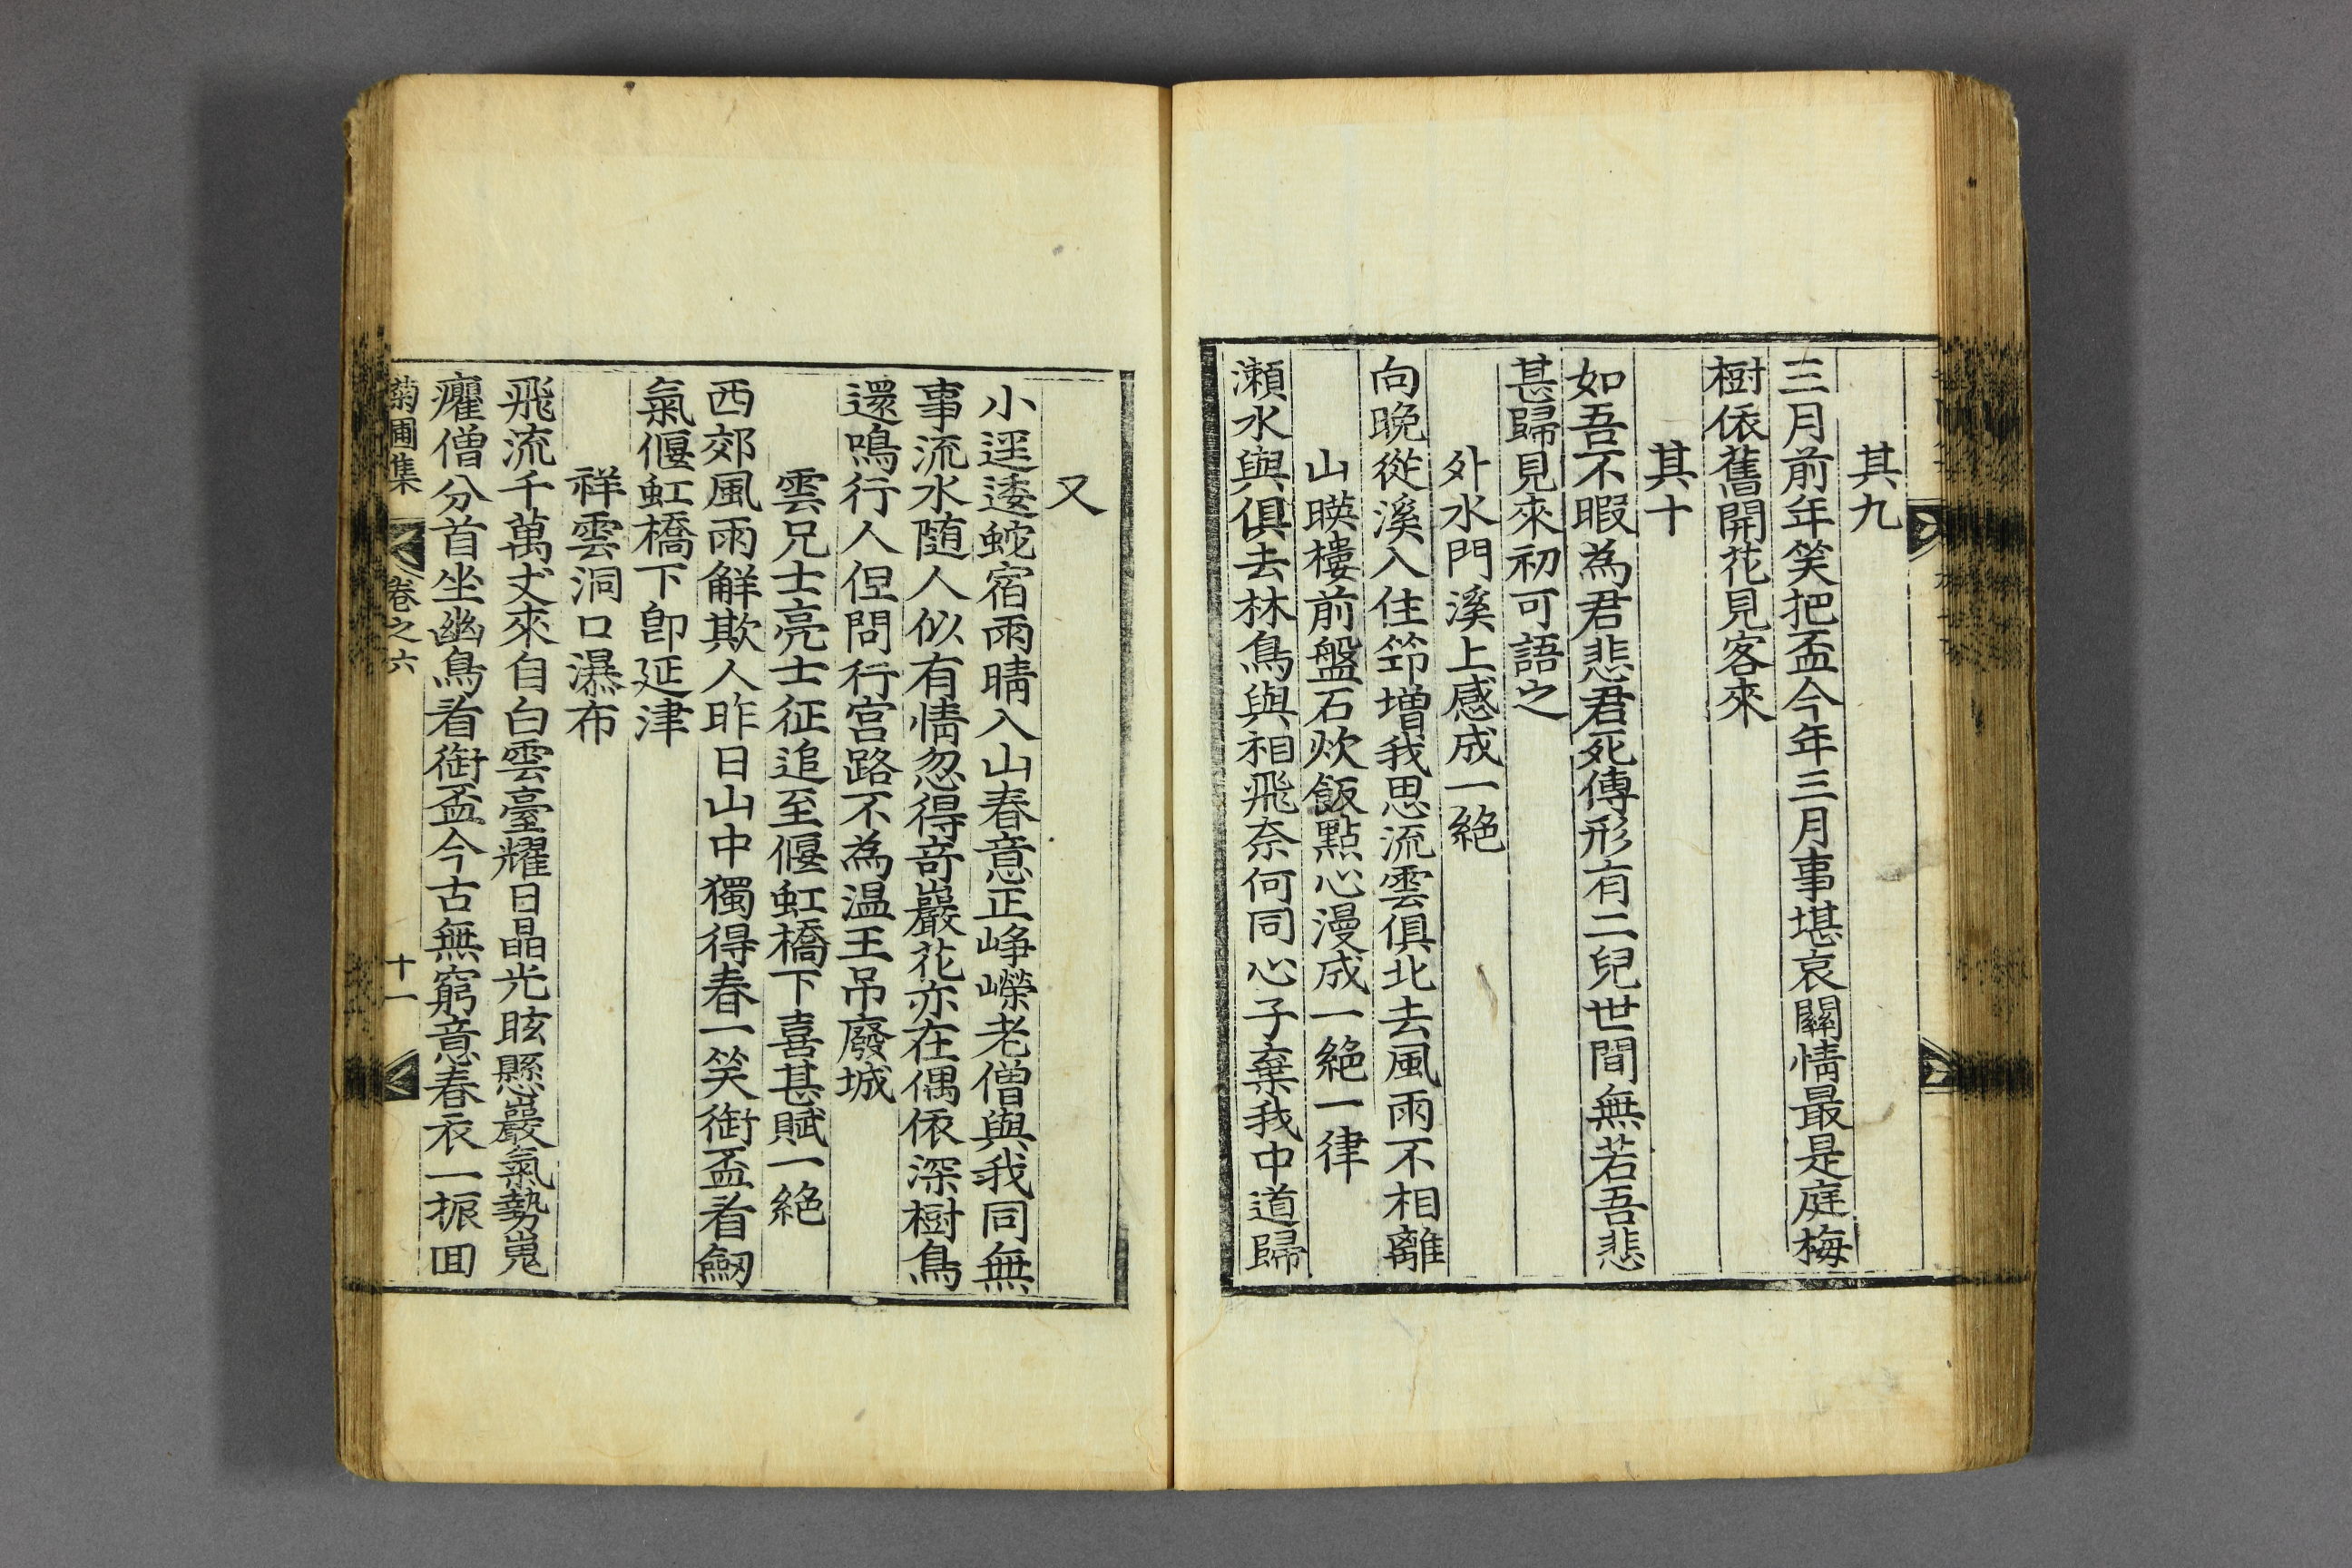 其九
三月前年笑把盃今年三月事堪哀關情最是庭梅
樹依舊開花見客來
其十
如吾不暇為君悲君死傳形有二兒世間無若吾悲
甚歸見來初可語之
外水門溪上感成一絶
向晚從溪入住笻增我思流雲俱北去風雨不相離
山暎樓前盤石炊飯點心漫成一絶一律
瀨水與俱去林鳥與相飛奈何同心子棄我中道歸
又
小逕逶蛇宿雨晴入山春意正崢嶸老僧與我同無
事流水随人似有情忽得竒巖花亦在偶依深樹鳥
還鳴行人但問行宫路不為温王吊廢城
雲兄士亮士征追至偃虹橋下喜甚賦一絶
西郊風雨觧欺人昨日山中獨得春一笑銜盃看劒
氣偃虹橋下卽延津
祥雲洞口瀑布
飛流千萬丈來自白雲臺耀日晶光眩懸巖氣勢嵬
癯僧分首坐幽鳥看銜盃今古無窮意春衣一振回
菊圃集 卷之六 十一